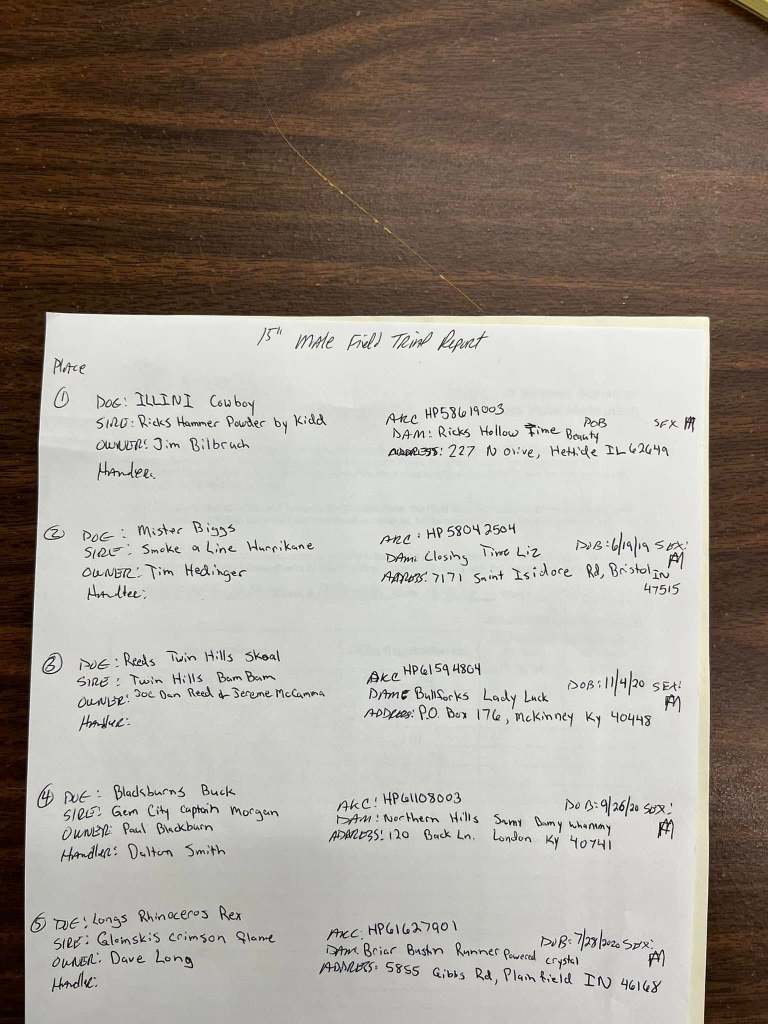 15" MALE Field TRIAL Report
PLACE
① DOG: ILLINI Cowboy AKC HP58619003
SIRE: Ricks Hammer Powder by Kidd DAM: Ricks Hollow Time Beauty DOB SEX M
OWNER: Jim Bilbruch ADDRESS: 227 N Olive, Hettick IL 62649
Handler:
② DOG: Mister Biggs AKC: HP58042504
SIRE: Smoke a Line Hurrikane DAM: Closing Time Liz DOB: 6/19/19 SEX: M
OWNER: Tim Hedinger ADDRESS: 7171 Saint Isidore Rd, Bristol IN 47515
Handler:
③ DOG: Reeds Twin Hills Skoal AKC HP61594804
SIRE: Twin Hills Bam Bam DAM: Bullforks Lady Luck DOB: 11/4/20 SEX: M
OWNER: Joe Dan Reed & Jereme McCamma ADDRESS: P.O. Box 176, McKinney Ky 40448
Handler:
④ DOG: Bladsburns Buck AKC: HP61108003
SIRE: Gem City Captain Morgan DAM: Northern Hills Samy Damy Whammy DOB: 9/26/20 SEX: M
OWNER: Paul Blackburn ADDRESS: 120 Back Ln. London Ky 40741
Handler: Dalton Smith
⑤ DOG: Longs Rhinoceros Rex AKC: HP61627901
SIRE: Glomskis Crimson Flame DAM: Briar Bustin Runner Powered crystal DOB: 7/28/2020 SEX: M
OWNER: Dave Long ADDRESS: 5855 Gibbs Rd, Plainfield IN 46168
Handler: